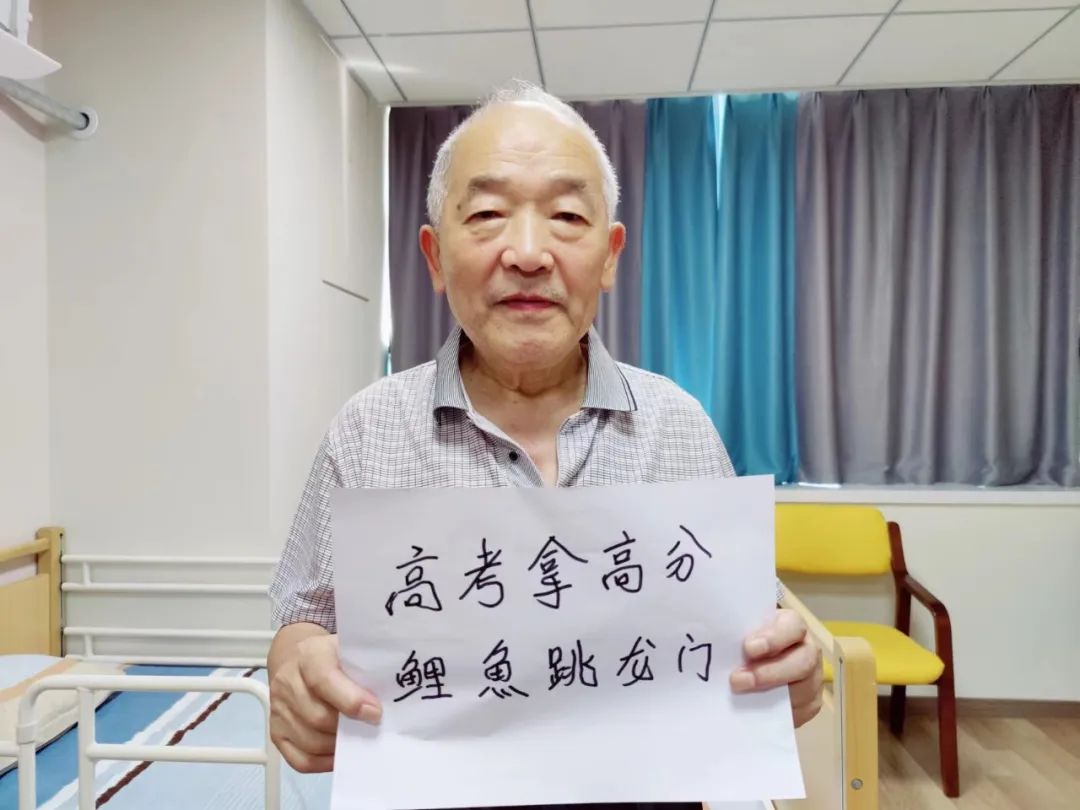 高考拿高分
鲤魚跳龙门